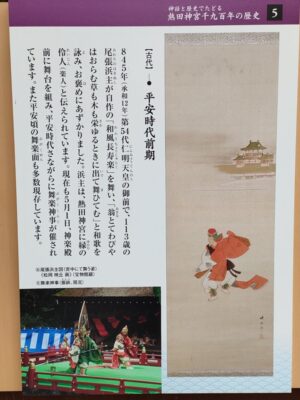 神話と歴史でたどる
熱田神宮千九百年の歴史 5
【古代】 ● 平安時代前期
845年(承和12年)第54代仁明天皇の御前で、113歳の
尾張浜主が自作の「和風長寿楽」を舞い、「翁とてわびや
はおらむ草も木も栄ゆるときに出て舞ひてむ」と和歌を
詠み、お褒めにあずかりました。浜主は、熱田神宮に縁の
伶人(楽人)と伝えられています。現在も5月1日、神楽殿
前に舞台を組み、平安時代さながらに舞楽神事が催され
ています。また平安頃の舞楽面も多数現存しています。